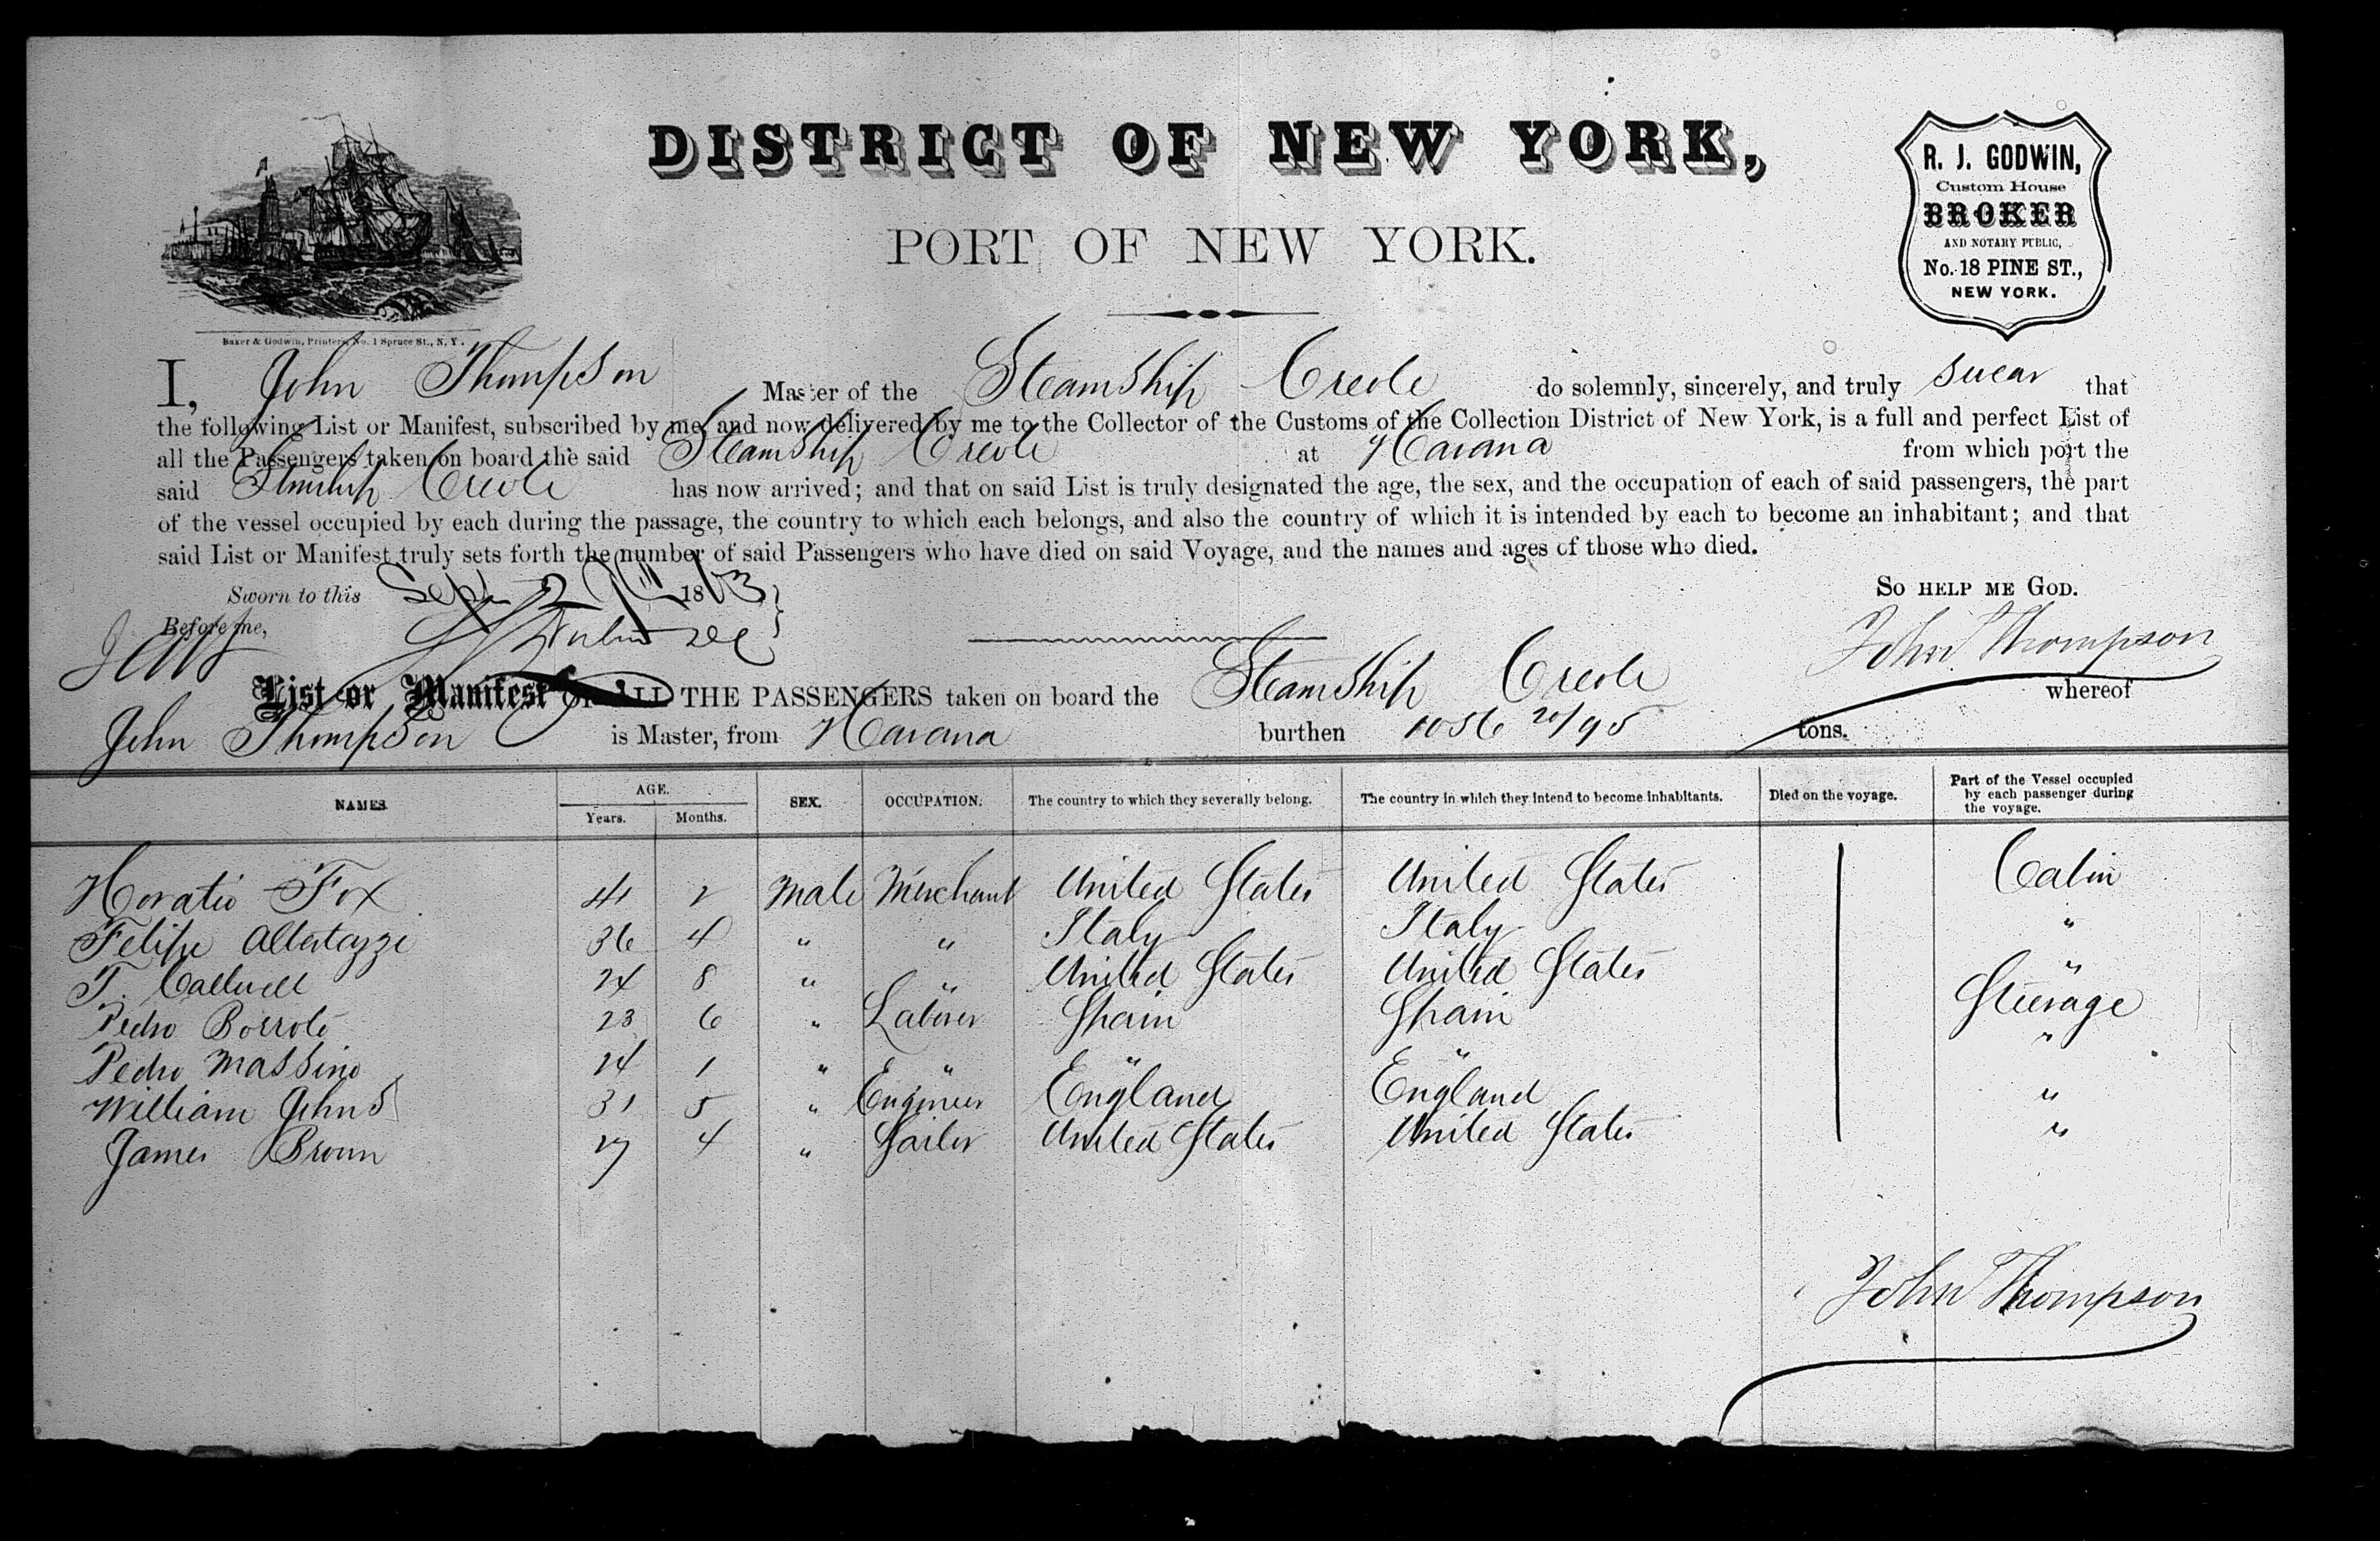 DISTRICT OF NEW YORK,
PORT OF NEW YORK.
R. J. GODWIN,
Custom House
BROKER
AND NOTARY PUBLIC,
No. 18 PINE ST.,
NEW YORK.
Baker & Godwin, Printers, No. 1 Spruce St., N. Y.
I, John Thompson Master of the Steamship Creole do solemnly, sincerely, and truly swear that
the following List or Manifest, subscribed by me, and now delivered by me to the Collector of the Customs of the Collection District of New York, is a full and perfect List of
all the Passengers taken on board the said Steamship Creole at Havana from which port the
said Steamship Creole has now arrived; and that on said List is truly designated the age, the sex, and the occupation of each of said passengers, the part
of the vessel occupied by each during the passage, the country to which each belongs, and also the country of which it is intended by each to become an inhabitant; and that
said List or Manifest truly sets forth the number of said Passengers who have died on said Voyage, and the names and ages of those who died.
Sworn to this Sept 1863 SO HELP ME GOD.
Before me, John Thompson
List or Manifest OF ALL THE PASSENGERS taken on board the Steamship Creole whereof
John Thompson is Master, from Havana burthen 1056 20/95 tons.
NAMES. AGE. SEX. OCCUPATION. The country to which they severally belong. The country in which they intend to become inhabitants. Died on the voyage. Part of the Vessel occupied by each passenger during the voyage.
Years. Months.
Horatio Fox 41 2 Male Merchant United States United States Cabin
Felipe 36 4 " " Italy Italy "
T. Callwell 24 8 " " United States United States "
Pedro 23 6 " Laborer Spain Spain Steerage
Pedro Massino 24 1 " " " " "
William Johns 31 5 " Engineer England England "
James Brown 27 4 " Sailor United States United States "
John Thompson